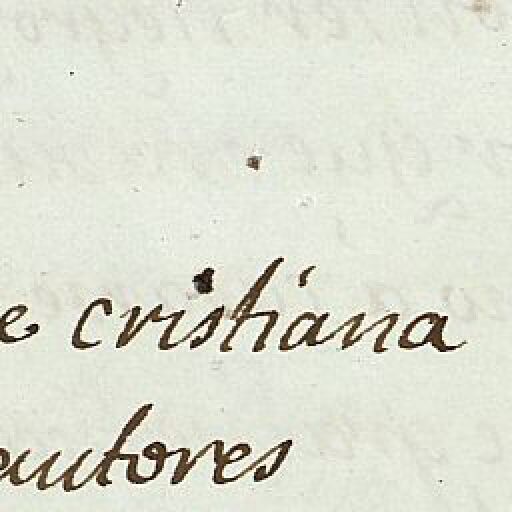 e cristiana
autores